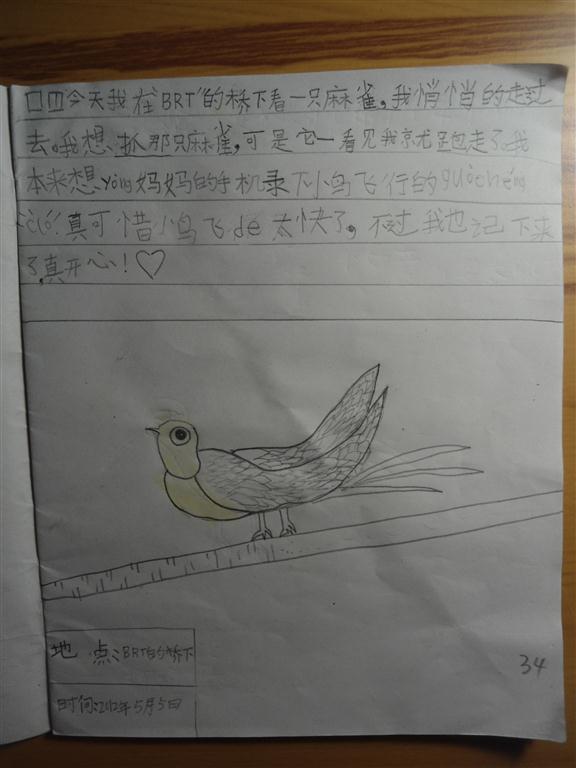 今天我在"BRT"的桥下看一只麻雀,我悄悄的走过
去。我想抓那只麻雀,可是它一看见我就跑走了。我
本来想yòng妈妈的手机录下小鸟飞行的guòchéng
真可惜小鸟飞de太快了,不过我也记下来
了,真开心!♡
地点:BRT的桥下
时间:2012年5月5日
34